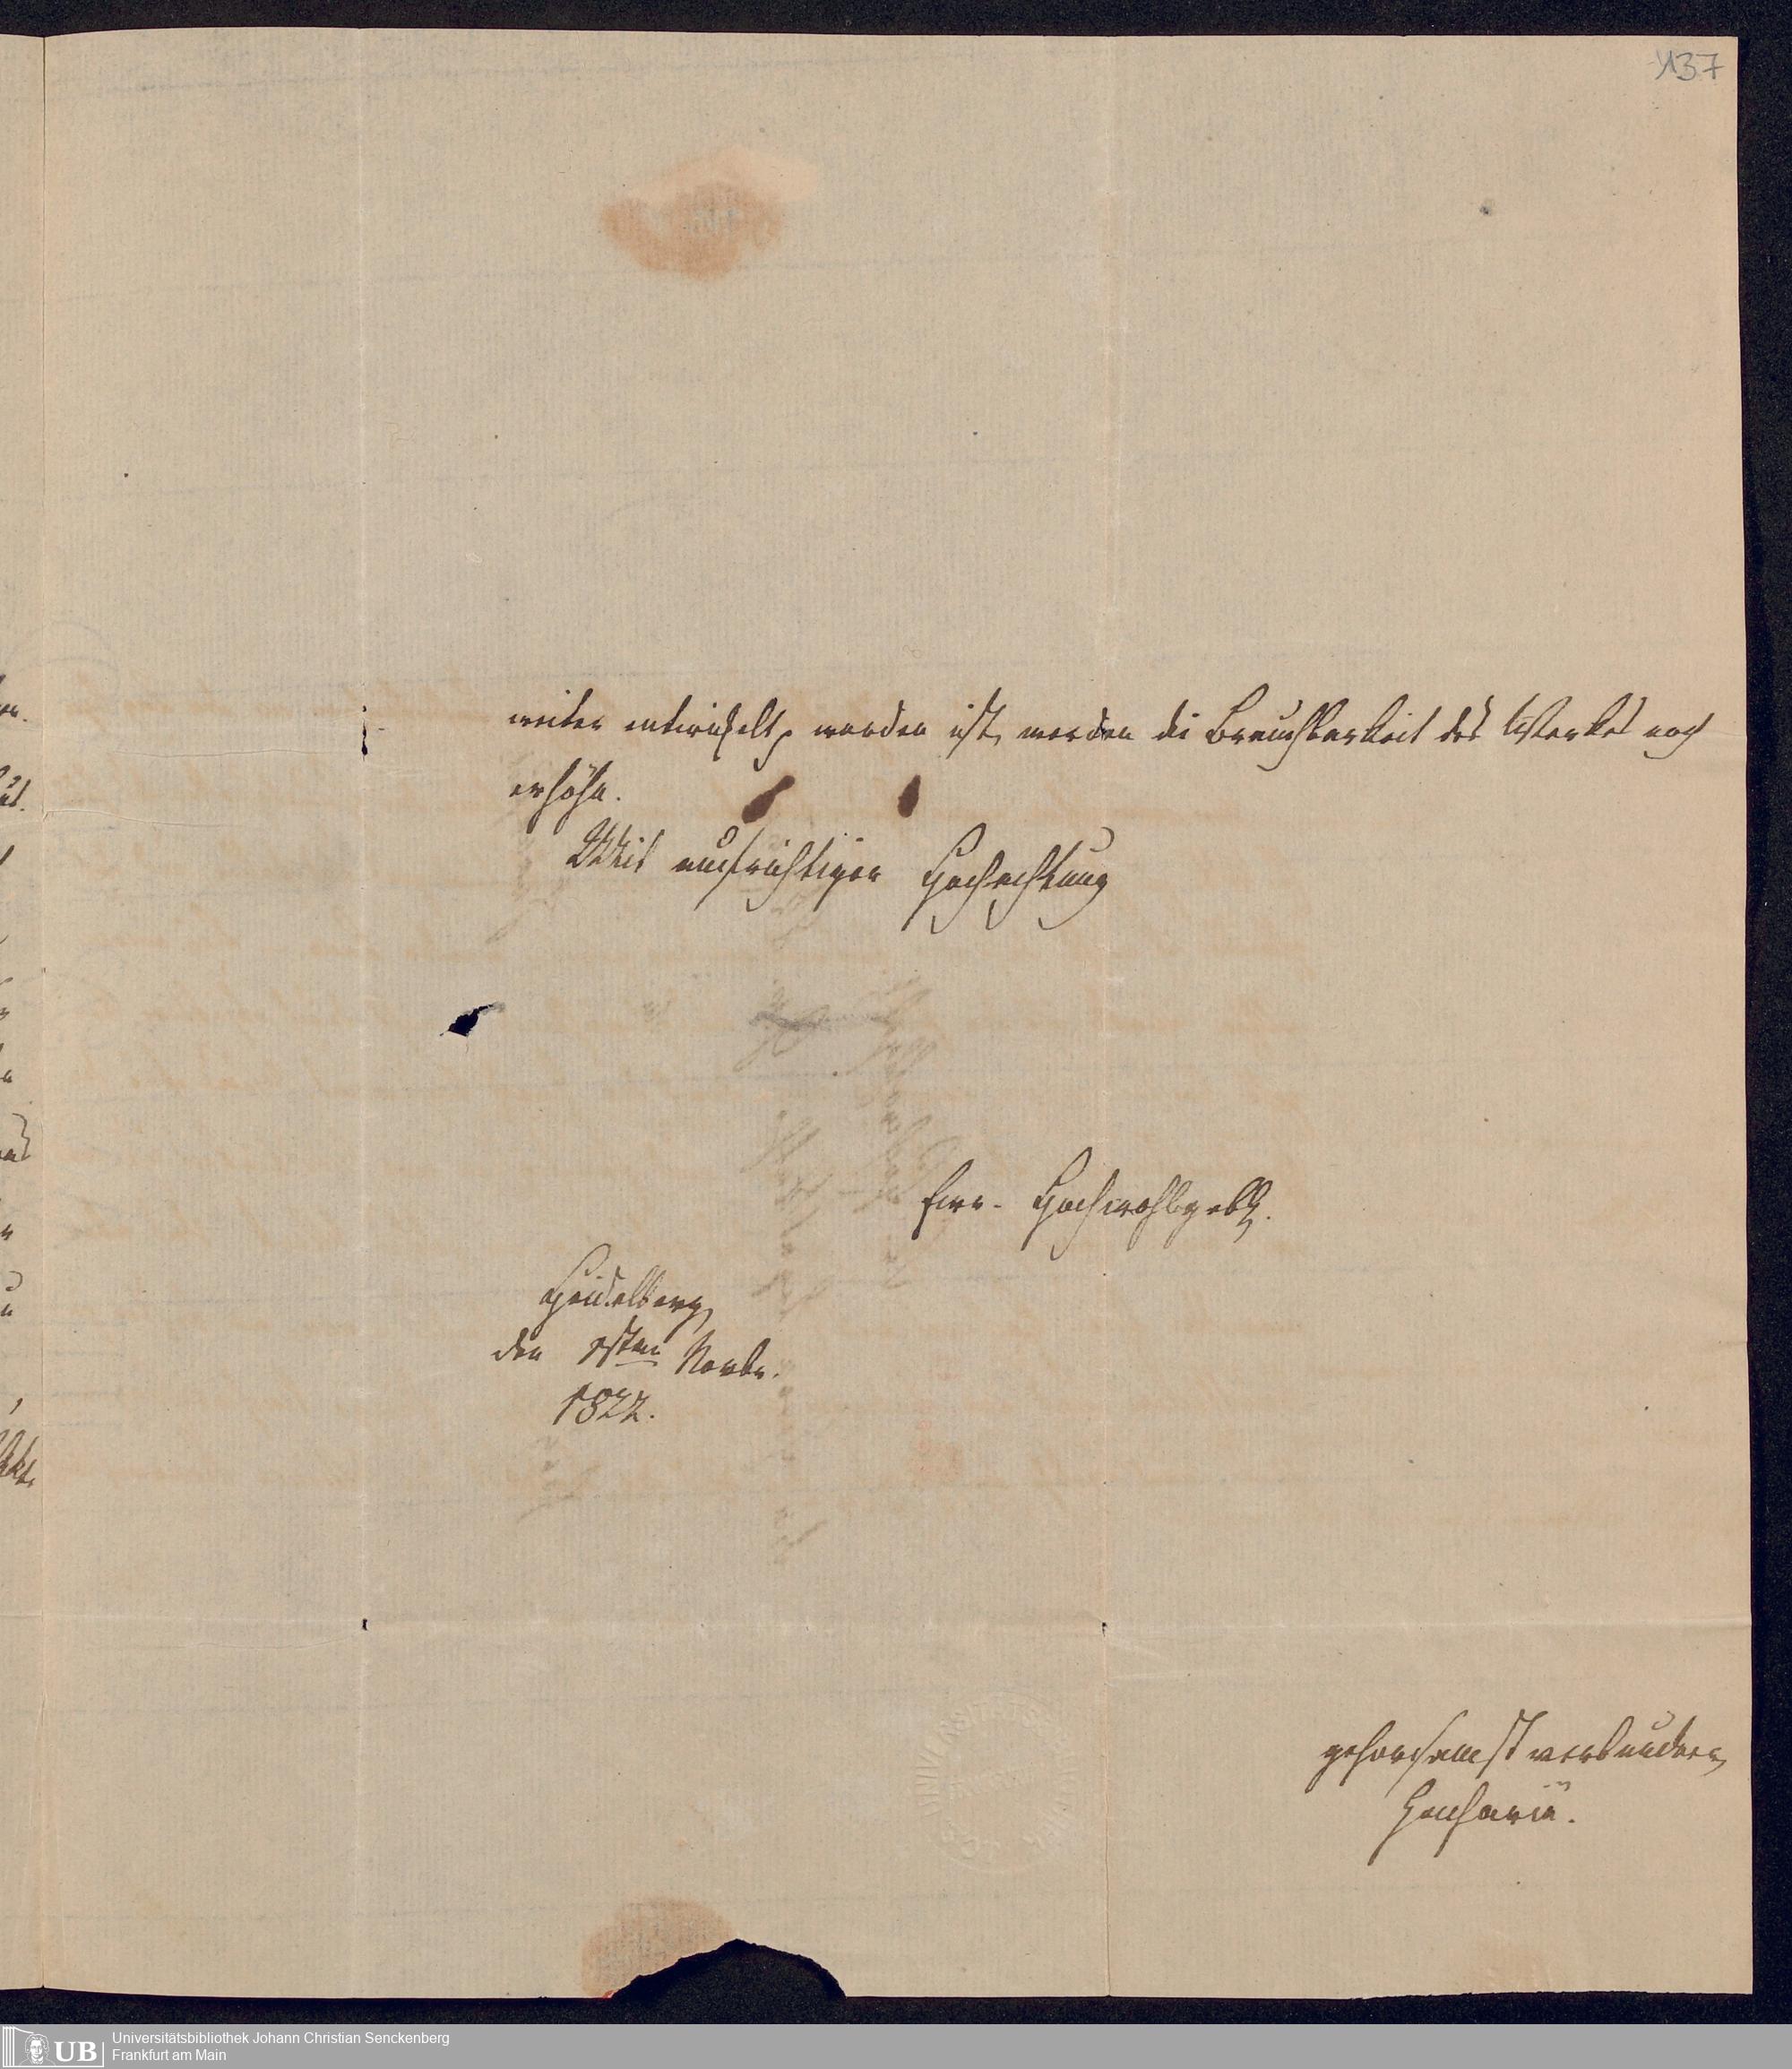 137
weiter entwickelt worden ist, werden die Brauchbarkeit des Werkes noch
erhöhn.
Mit aufrichtiger Hochachtung
Ewr. Hochwohlgeb.
Heidelberg,
den 1sten Novbr.
1822.
gehorsamst verbundner,
Zachariä.
UB
Universitätsbibliothek Johann Christian Senckenberg
Frankfurt am Main